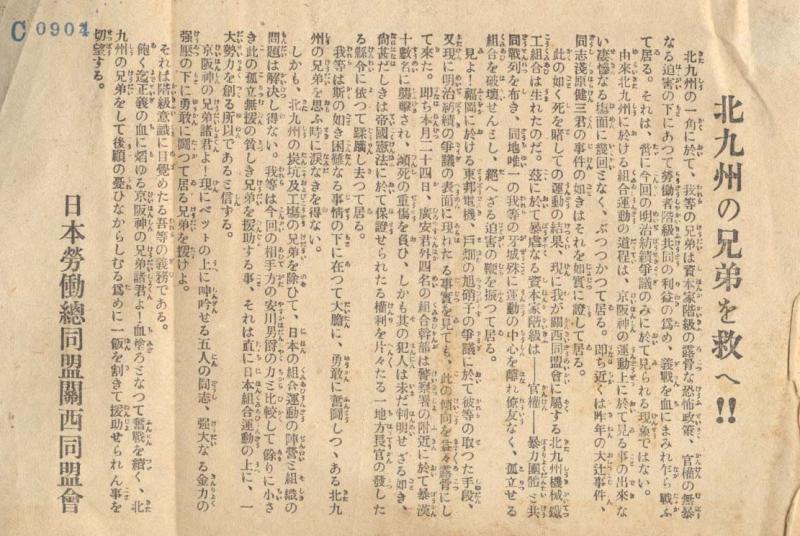 C 0904
北九州の兄弟を救へ!!
北九州の一角に於て、我等の兄弟は資本家階級の露骨な恐怖政策、官權の無暴
なる迫害の下にあつて勞働者階級共同の利益の爲め、義戰を血にまみれ乍ら戰ふ
て居る。それは、啻に今回の明治紡績爭議のみに於て見られる現象ではない。
由來北九州に於ける組合運動の道程は、京阪神の運動上に於て見る事の出來な
い凄慘なる塲面に幾回となく、ぶつつかつて居る。即ち近くは昨年の大辻事件、
同志淺原健三君の事件の如きはそれを如實に證して居る。
此の如く死を賭しての運動の結果、現に我が關西同盟會に屬する北九州機械鐵
工組合は生れたのだ。茲に於て暴虐なる資本家階級は――官權――暴力團體と共
同戰列を布き、同地唯一の我等の牙城殊に運動の中心を離れ僚友なく、孤立せる
組合を破壞せんとし、絕へざる迫害の鞭を振つて居る。
見よ!福岡に於ける東邦電機、戸畑の旭硝子の爭議に於て彼等の取つた手段、
又現に明治紡績の爭議の表面に現れたる事實を見ても、此の傾向を益々露骨にし
て來た。即ち本月二十四日、廣安君外四名の組合幹部は警察署の附近に於て暴漢
十數名に襲擊され、瀕死の重傷を負ひ、しかも其の犯人は未だ判明せざる如き、
尙甚だしきは帝國憲法に於て保證せられたる權利を片々たる一地方長官の發した
る縣令に依つて蹂躪し去つて居る。
我等は斯の如き困難なる事情の下に在つて大膽に、勇敢に奮鬪しつゝある北九
州の兄弟を思ふ時に淚なきを得ない。
しかも、北九州の炭坑及工塲の兄弟を除ひて、日本の組合運動の陣營と組織の
問題は解決し得ない。我等は今回の相手方の安川男爵の力と比較して餘りに小さ
き此の孤立無援の貧しき兄弟を援助する事、それは直に日本組合運動の上に、一
大勢力を創る所以であると信する。
京阪神の兄弟諸君よ!現にベツトの上に呻吟せる五人の同志、强大なる金力の
强壓の下に勇敢に鬪つて居る兄弟を援けよ。
それは階級意識に目覺めたる吾等の義務である。
飽く迄正義の血に燃ゆる京阪神の兄弟諸君よ!血塗ろとなつて奮戰を續く、北
九州の兄弟をして後顧の憂ひなからしむる爲めに一飯を割きて援助せられん事を
切望する。
日本勞働總同盟關西同盟會